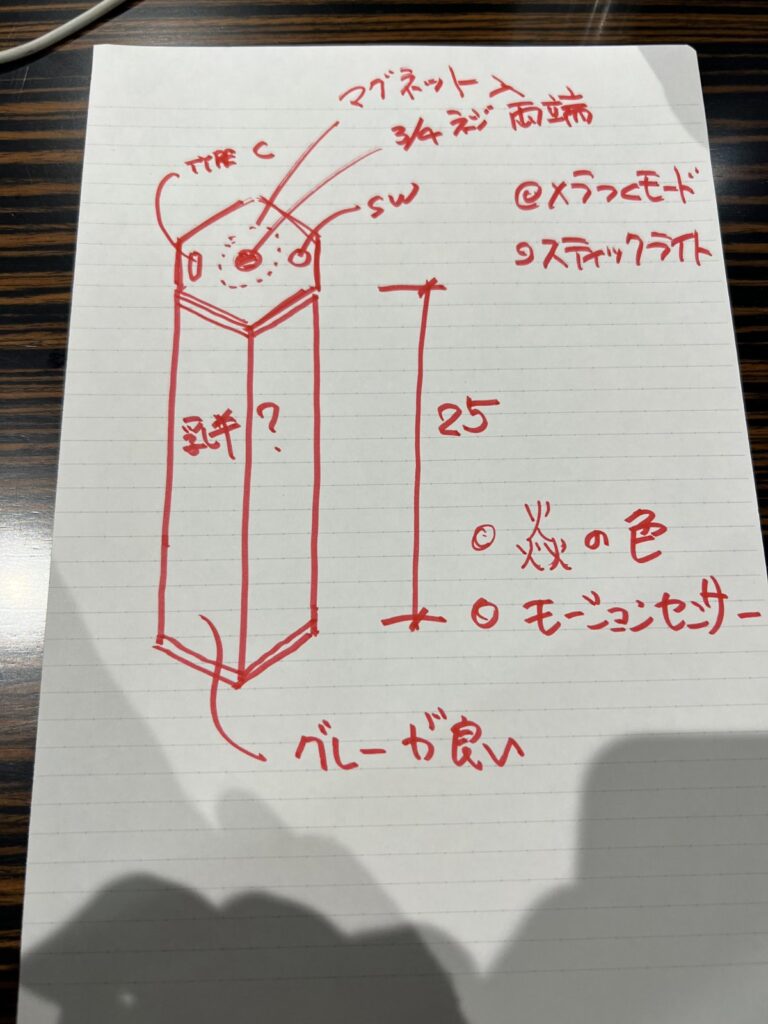 マグネット入
3/4 ネジ 両端
TYPE C
SW
@メラつくモード
スティックライト
25
乳半?
焱の色
モーションセンサー
グレーが良い